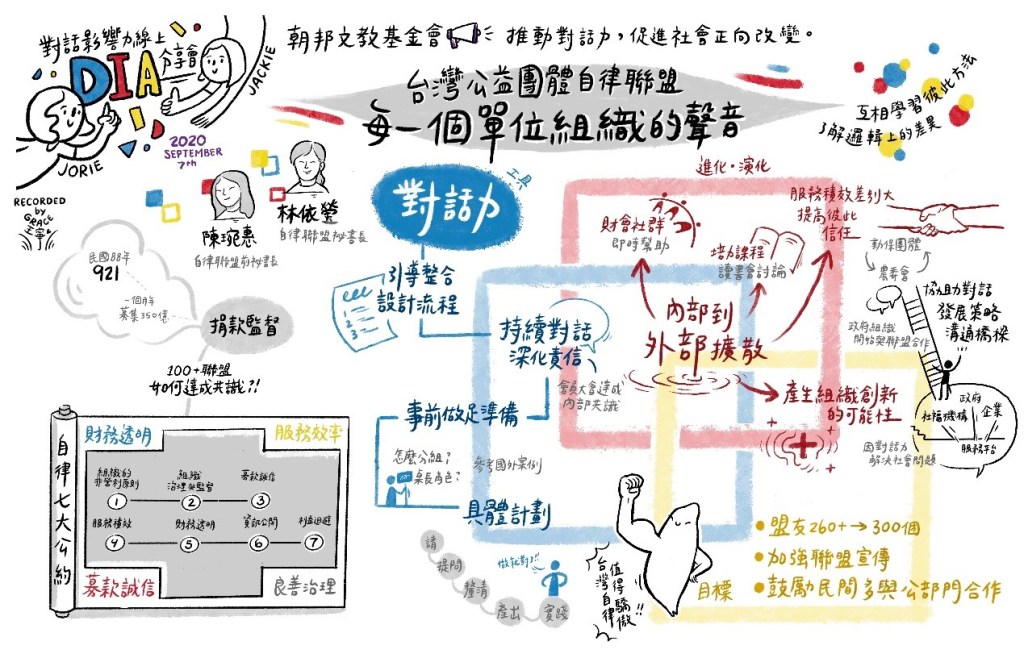 對話影響力線上
DIA
分享會
JACKIE
JORIE
2020
SEPTEMBER
7th
RECORDED
by
GRACE
朝邦文教基金會
推動對話力，促進社會正向改變。
台灣公益團體自律聯盟
每一個單位組織的聲音
互相學習彼此方法
了解邏輯上的差異
陳琬惠
自律聯盟前祕書長
林依瑩
自律聯盟祕書長
民國88年
921
一個月
募集350億
捐款監督
100+聯盟
如何達成共識?!
自律七大公約
財務透明
服務效率
組織的
非營利原則
①
組織
治理與監督
②
募款誠信
③
服務績效
④
財務透明
⑤
資訊公開
⑥
利益迴避
⑦
募款誠信
良善治理
對話力
工具
引導整合
設計流程
1
2
3
持續對話
深化責信
會員大會達成
內部共識
事前做足準備
怎麼分組?
桌長角色?
參考國外案例
具體計劃
請
提問
釐清
產出
實踐
做就對了!!
進化·演化
財會社群
即時幫助
培力課程
讀書會討論
服務績效差別大
提高彼此
信任
內部到
外部擴散
產生組織創新
的可能性
動保團體
農委會
政府組織
開始與聯盟合作
協助對話
發展策略
溝通橋樑
政府
社福機構
企業
服務平台
因對話力
解決社會問題
值得驕傲!!
台灣自律
目標
•盟友260+→300個
•加強聯盟宣傳
•鼓勵民間多與公部門合作